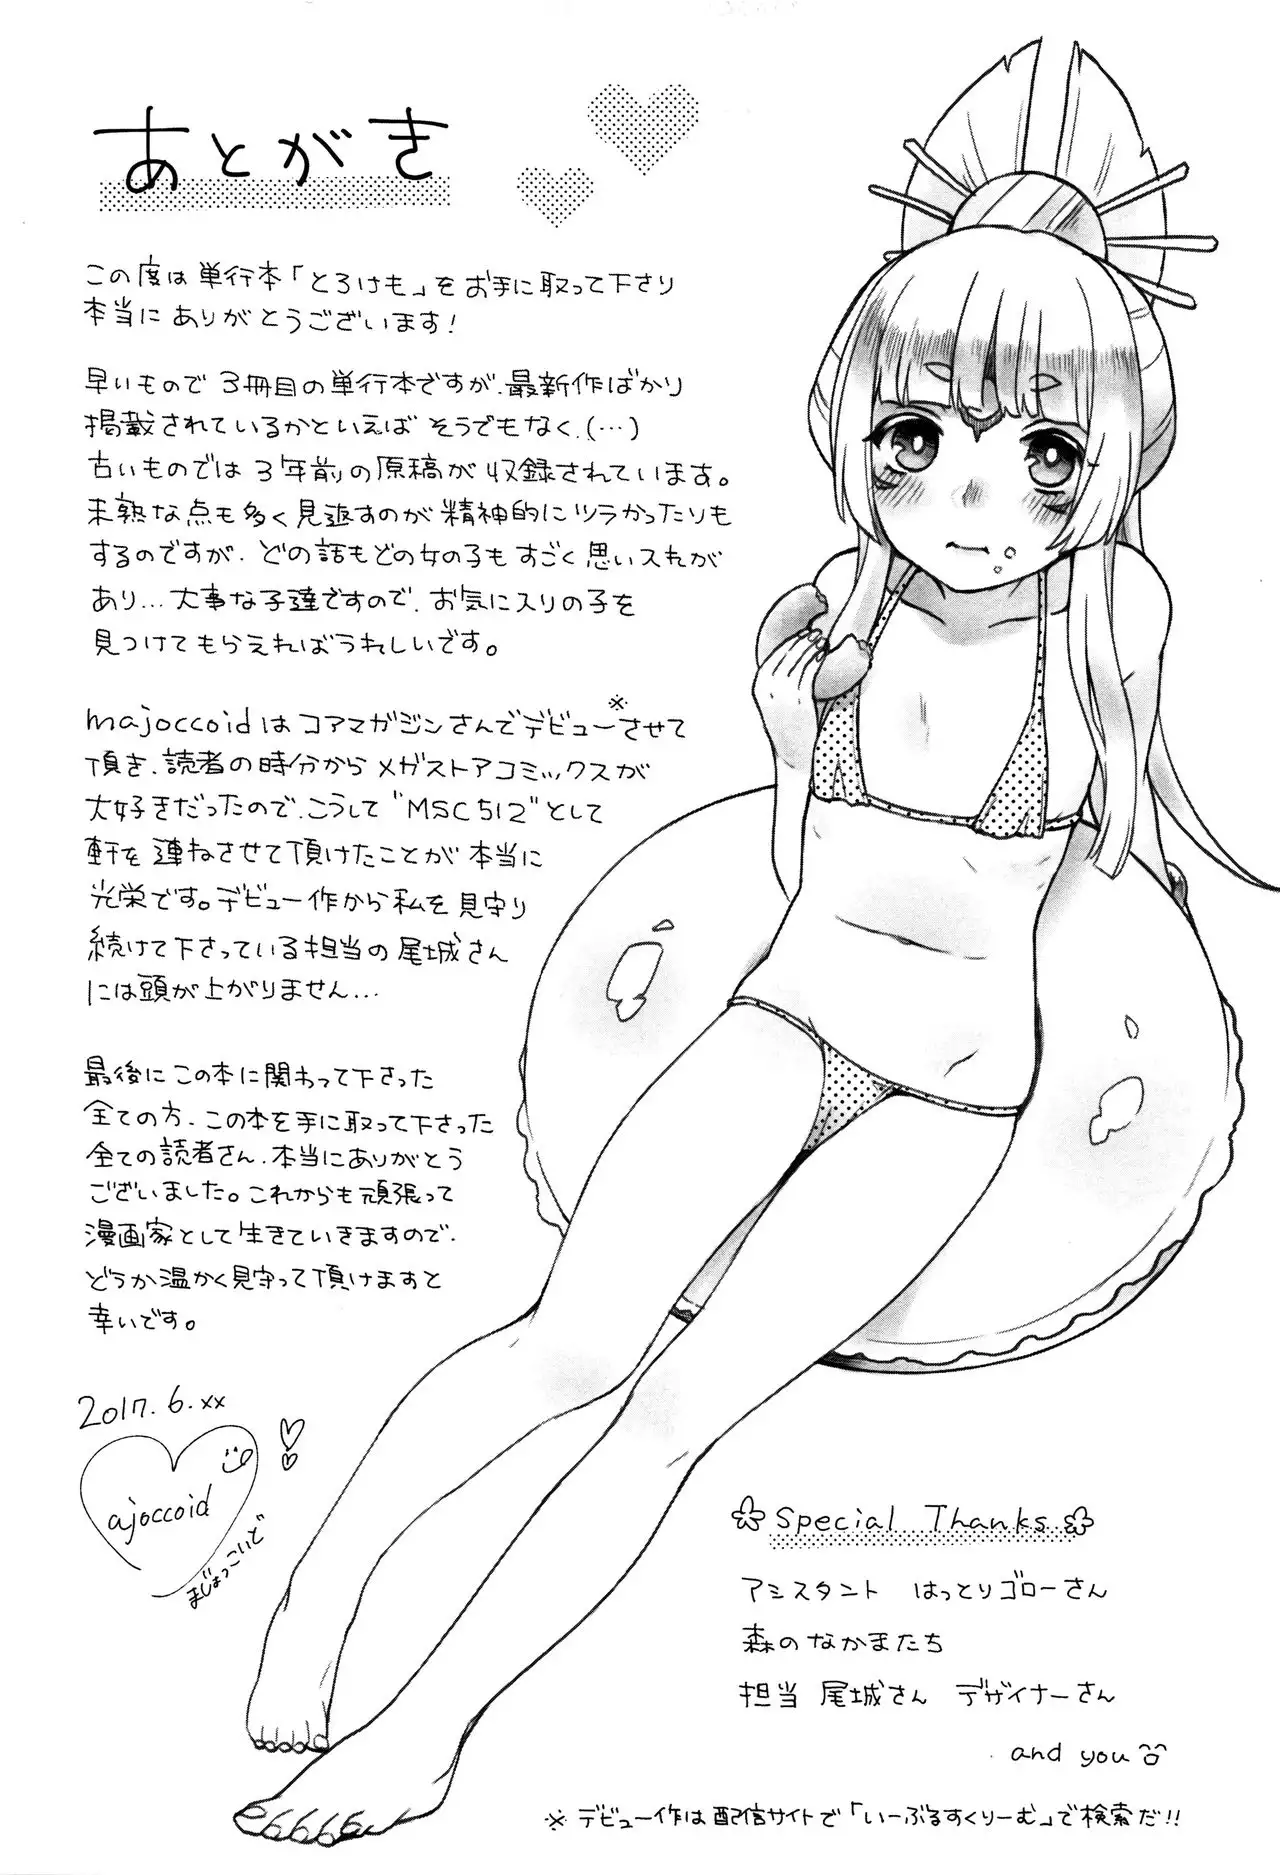 あとがき
この度は単行本「とろけも」をお手に取って下さり
本当にありがとうございます!
早いもので3冊目の単行本ですが、最新作ばかり
掲載されているかといえばそうでもなく、(…)
古いものでは3年前の原稿が収録されています。
未熟な点も多く見返すのが精神的にツラかったりも
するのですが、どの話もどの女の子もすごく思い入れが
あり…大事な子達ですので、お気に入りの子を
見つけてもらえればうれしいです。
majoccoidはコアマガジンさんでデビュー※させて
頂き、読者の時分からメガストアコミックスが
大好きだったので、こうして"MSC512"として
軒を連ねさせて頂けたことが本当に
光栄です。デビュー作から私を見守り
続けて下さっている担当の尾城さん
には頭が上がりません…
最後にこの本に関わって下さった
全ての方、この本を手に取って下さった
全ての読者さん、本当にありがとう
ございました。これからも頑張って
漫画家として生きていきますので、
どうか温かく見守って頂けますと
幸いです。
2017.6.xx
majoccoid
まじょっこいど
Special Thanks
アシスタント はっとりゴローさん
森のなかまたち
担当 尾城さん デザイナーさん
and you
※デビュー作は配信サイトで「いーぶるすくりーむ」で検索だ!!